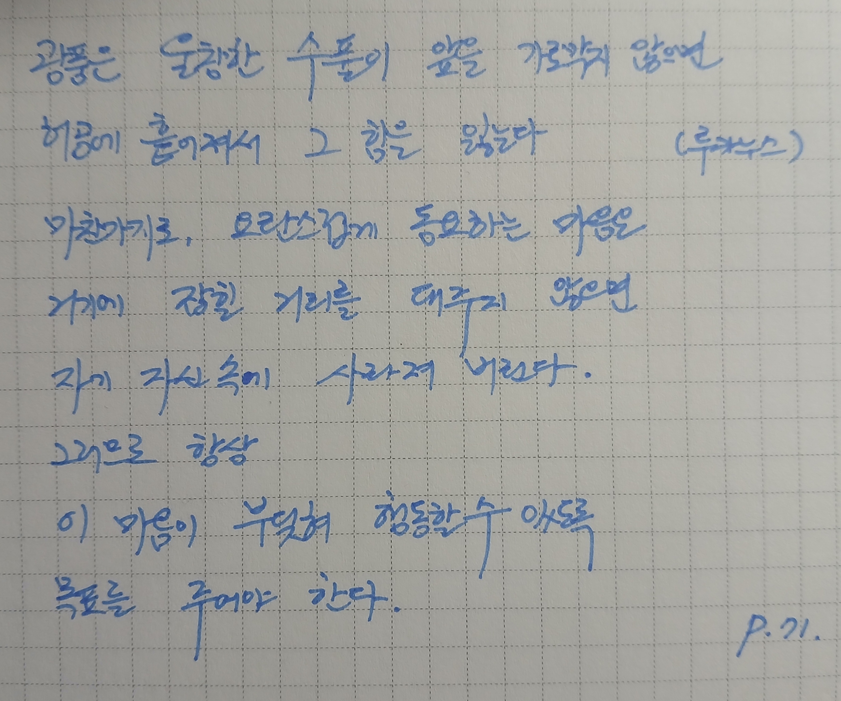 광풍은 울창한 수풀이 앞을 가로막지 않으면
허공에 흩어져서 그 힘을 잃는다 (루카누스)
마찬가지로, 요란스럽게 동요하는 마음은
거기에 잡힐 거리를 대주지 않으면
자기 자신 속에 사라져 버린다.
그러므로 항상
이 마음이 부딪혀 행동할 수 있도록
목표를 주어야 한다.
P.71.